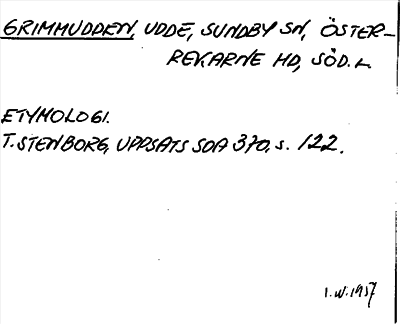 GRIMMUDDEN, UDDE, SUNDBY SN, ÖSTER-
REKARNE HD, SÖD. L
ETYMOLOGI.
T. STENBORG, UPPSATS SOA 370, s. 122.
I.W. 1957